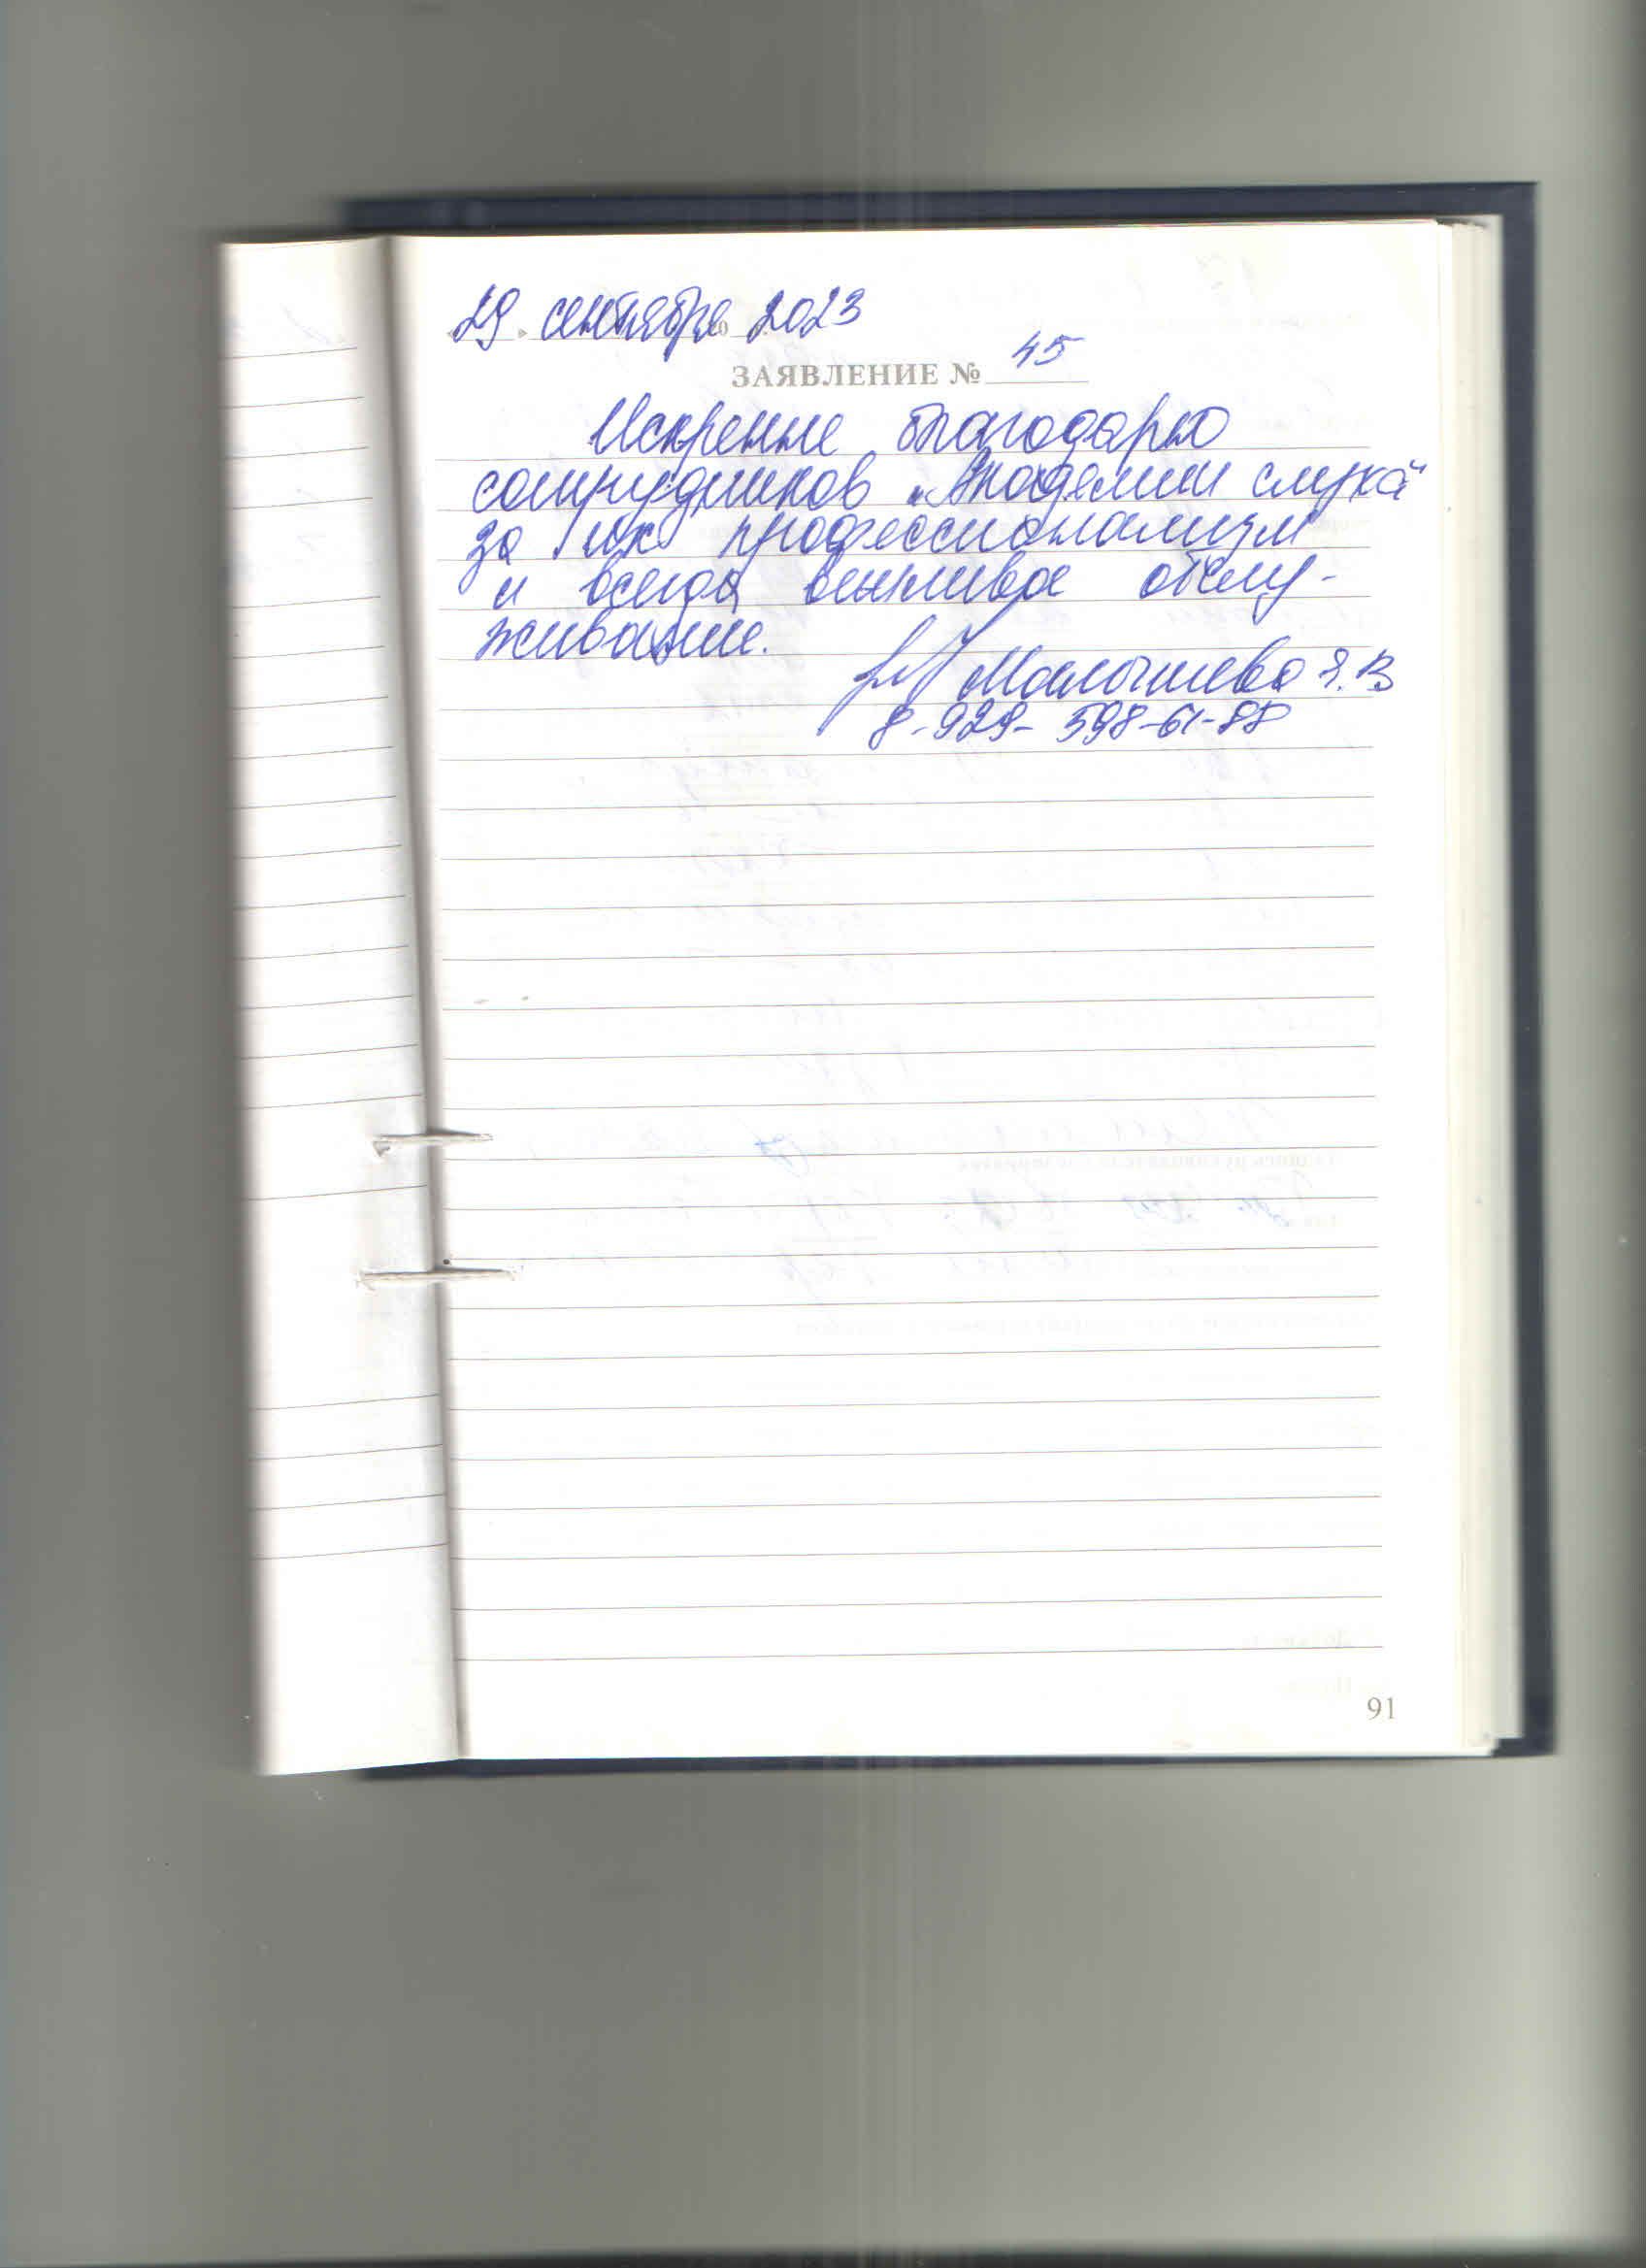 29 сентября 2023
ЗАЯВЛЕНИЕ № 45
Искренне благодарю
сотрудников „Академии слуха"
за их профессионализм
и всегда вежливое обслу-
живание.
Малышева Я.В
8-929-598-61-88
91